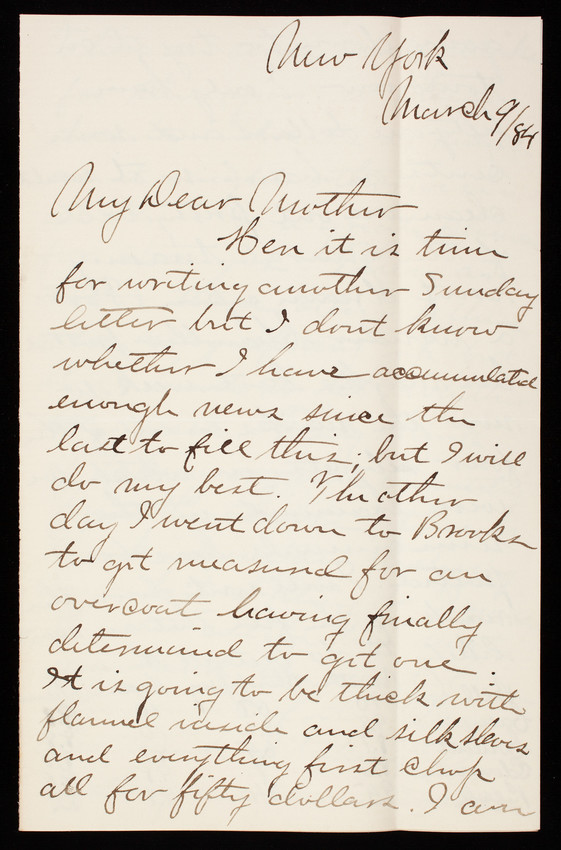 New York
March 9/84
My Dear Mother
Here it is time
for writing another Sunday
letter but I dont know
whether I have accumulated
enough news since the
last to fill this; but I will
do my best. The other
day I went down to Brooks
to get measured for an
overcoat having finally
determined to get one.
It is going to be thick with
flannel inside and silk sleeves
and everything first chop
all for fifty dollars. I am